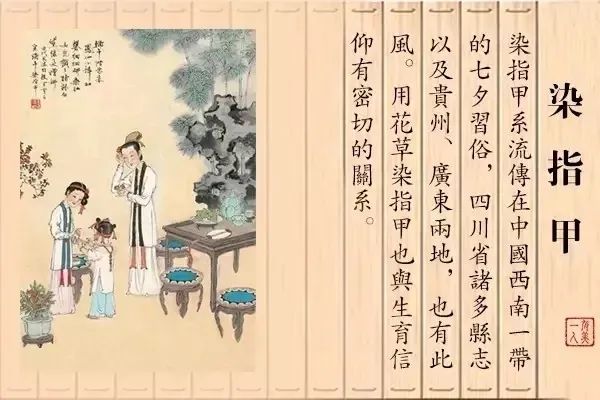 染指甲
染指甲系流傳在中國西南一帶
的七夕習俗，四川省諸多縣志
以及貴州、廣東兩地，也有此
風。用花草染指甲也與生育信
仰有密切的關系。